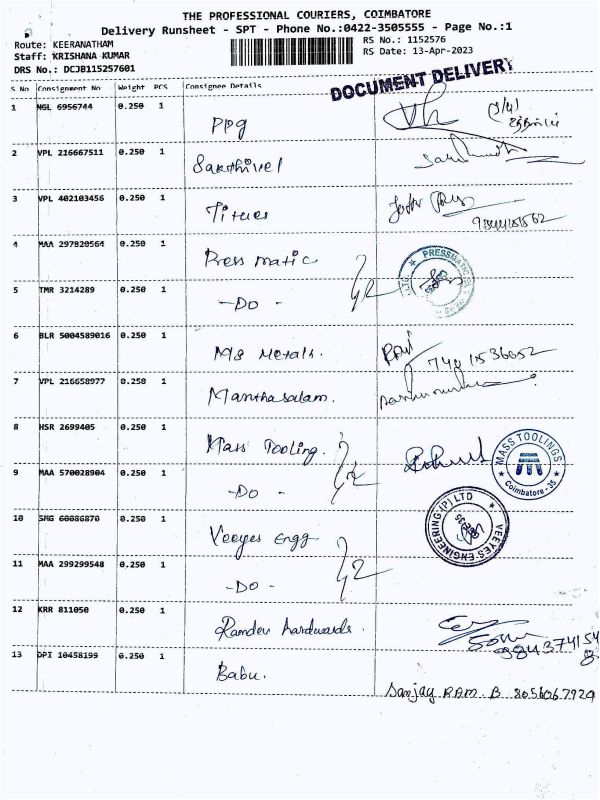 THE PROFESSIONAL COURIERS, COIMBATORE
Delivery Runsheet - SPT - Phone No.:0422-3505555 - Page No.:1
Route: KEERANATHAM
RS No.: 1152576
Staff: KRISHANA KUMAR
RS Date: 13-Apr-2023
DRS No.: DCJB115257601
DOCUMENT DELIVERY
S No Consignment No Weight PCS Consignee Details
1 NGL 6956744 0.250 1 PPg
2 VPL 216667511 0.250 1 Sakthivel
3 VPL 402103456 0.250 1
4 MAA 297820564 0.250 1 Press matic
PRESSMATIC
5 TMR 3214289 0.250 1 -DO-
6 BLR 5004589016 0.250 1 Metals.
7 VPL 216658977 0.250 1 Manthasalam.
8 HSR 2699405 0.250 1 Mass Tooling.
MASS TOOLINGS
Coimbatore - 35
9 MAA 570028904 0.250 1 -DO-
10 SMG 60086870 0.250 1 Veeyes Engg
VEEYES ENGINEERING (P) LTD
11 MAA 299299548 0.250 1 -DO-
12 KRR 811050 0.250 1 Ramdev hardwards.
13 DPI 10458199 0.250 1 Babu.
Sanjay RAM. B 8056067929